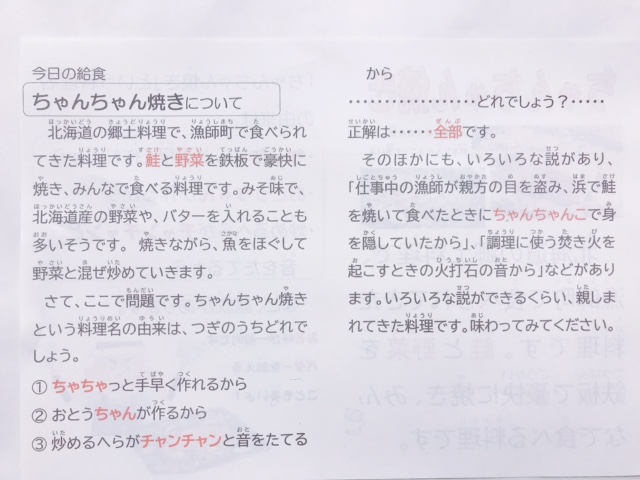 今日の給食
ちゃんちゃん焼きについて
北海道の郷土料理で、漁師町で食べられ
てきた料理です。鮭と野菜を鉄板で豪快に
焼き、みんなで食べる料理です。みそ味で、
北海道産の野菜や、バターを入れることも
多いそうです。焼きながら、魚をほぐして
野菜と混ぜ炒めていきます。
さて、ここで問題です。ちゃんちゃん焼き
という料理名の由来は、つぎのうちどれで
しょう。
① ちゃちゃっと手早く作れるから
② おとうちゃんが作るから
③ 炒めるへらがチャンチャンと音をたてる
から
‥‥‥‥‥‥‥‥‥どれでしょう？‥‥‥
正解は‥‥‥全部です。
そのほかにも、いろいろな説があり、
「仕事中の漁師が親方の目を盗み、浜で鮭
を焼いて食べたときにちゃんちゃんこで身
を隠していたから」、「調理に使う焚き火を
起こすときの火打石の音から」などがあり
ます。いろいろな説ができるくらい、親しま
れてきた料理です。味わってみてください。